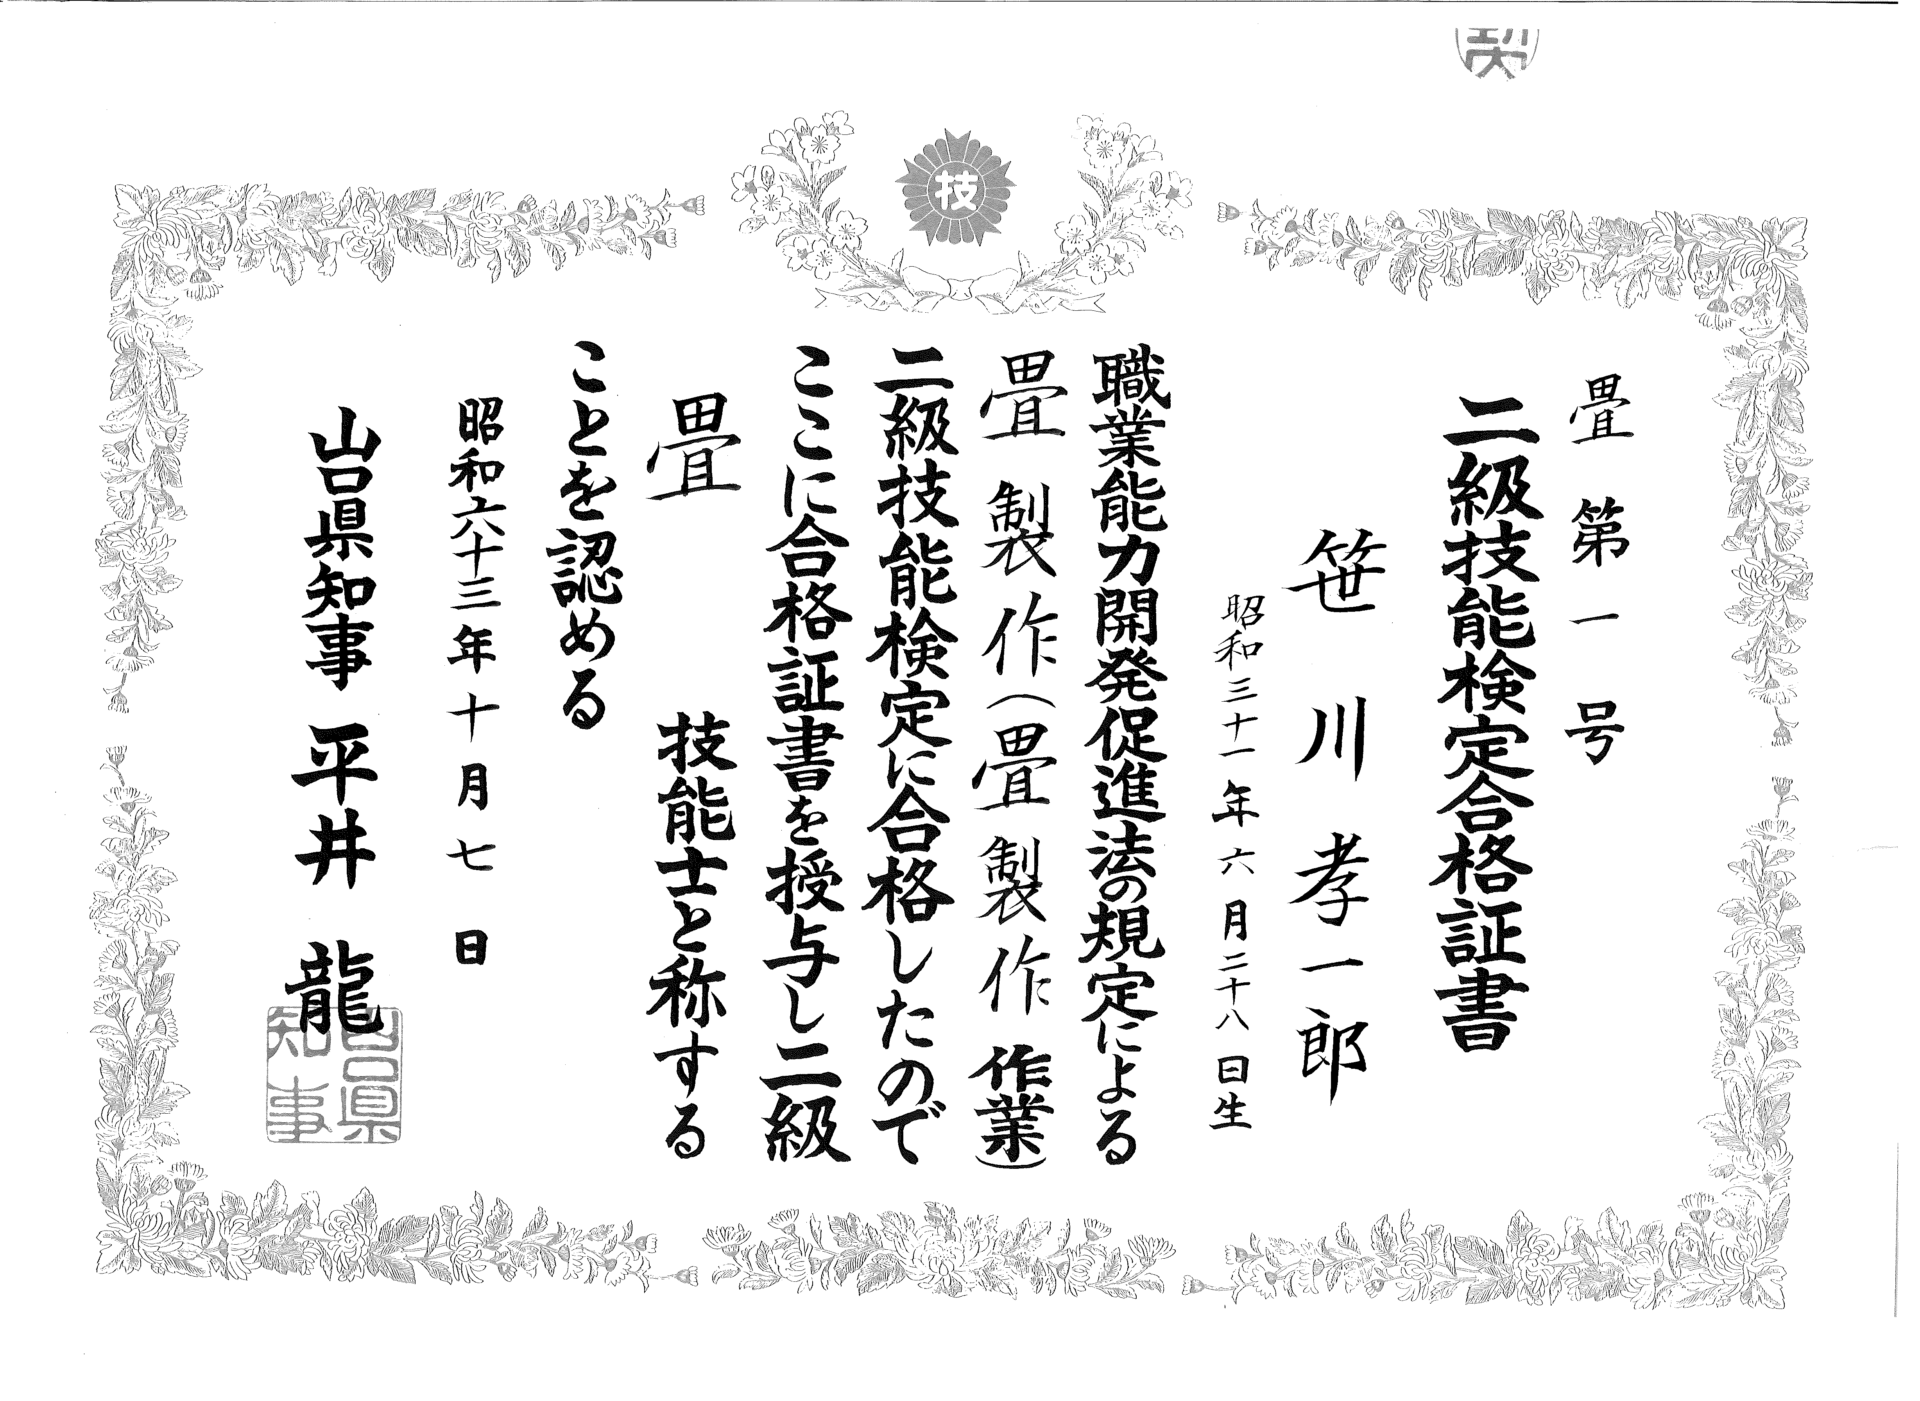 畳第一号
二級技能検定合格証書
笹川孝一郎
昭和三十一年六月二十八日生
職業能力開発促進法の規定による
畳製作(畳製作作業)
二級技能検定に合格したので
ここに合格証書を授与し二級
畳 技能士と称する
ことを認める
昭和六十三年十月七日
山口県知事 平井龍
山口県
知事
技